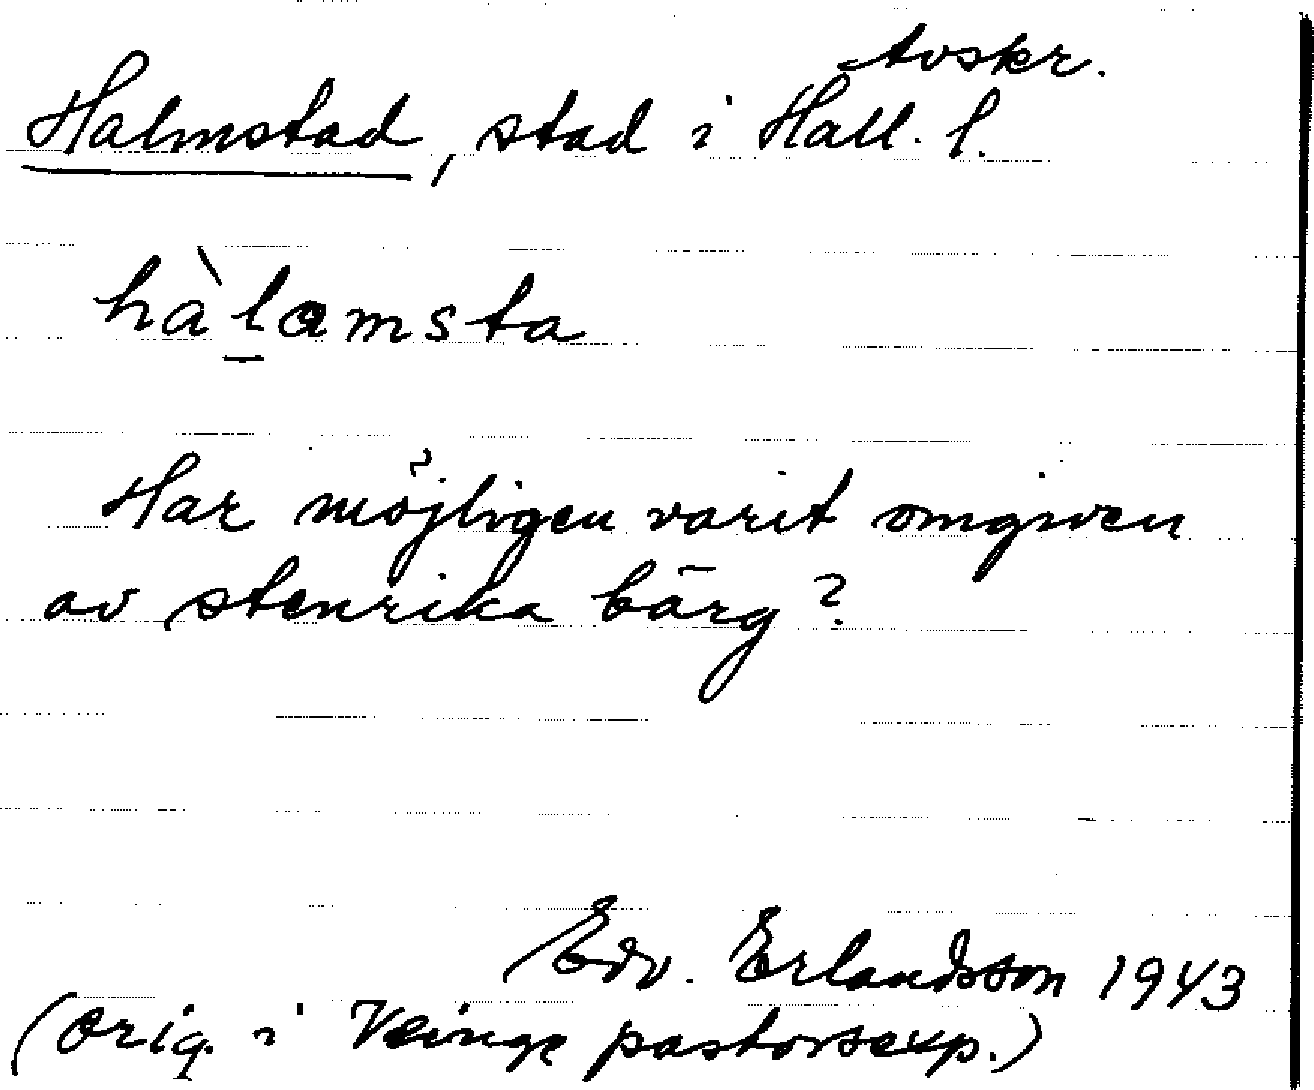 Avskr.
Halmstad, stad i Hall. l.
hàlamsta
Har möjligen varit omgiven
av stenrika bärg?
Edv. Erlandsson 1943
(Orig. i Veinge pastorsexp.)